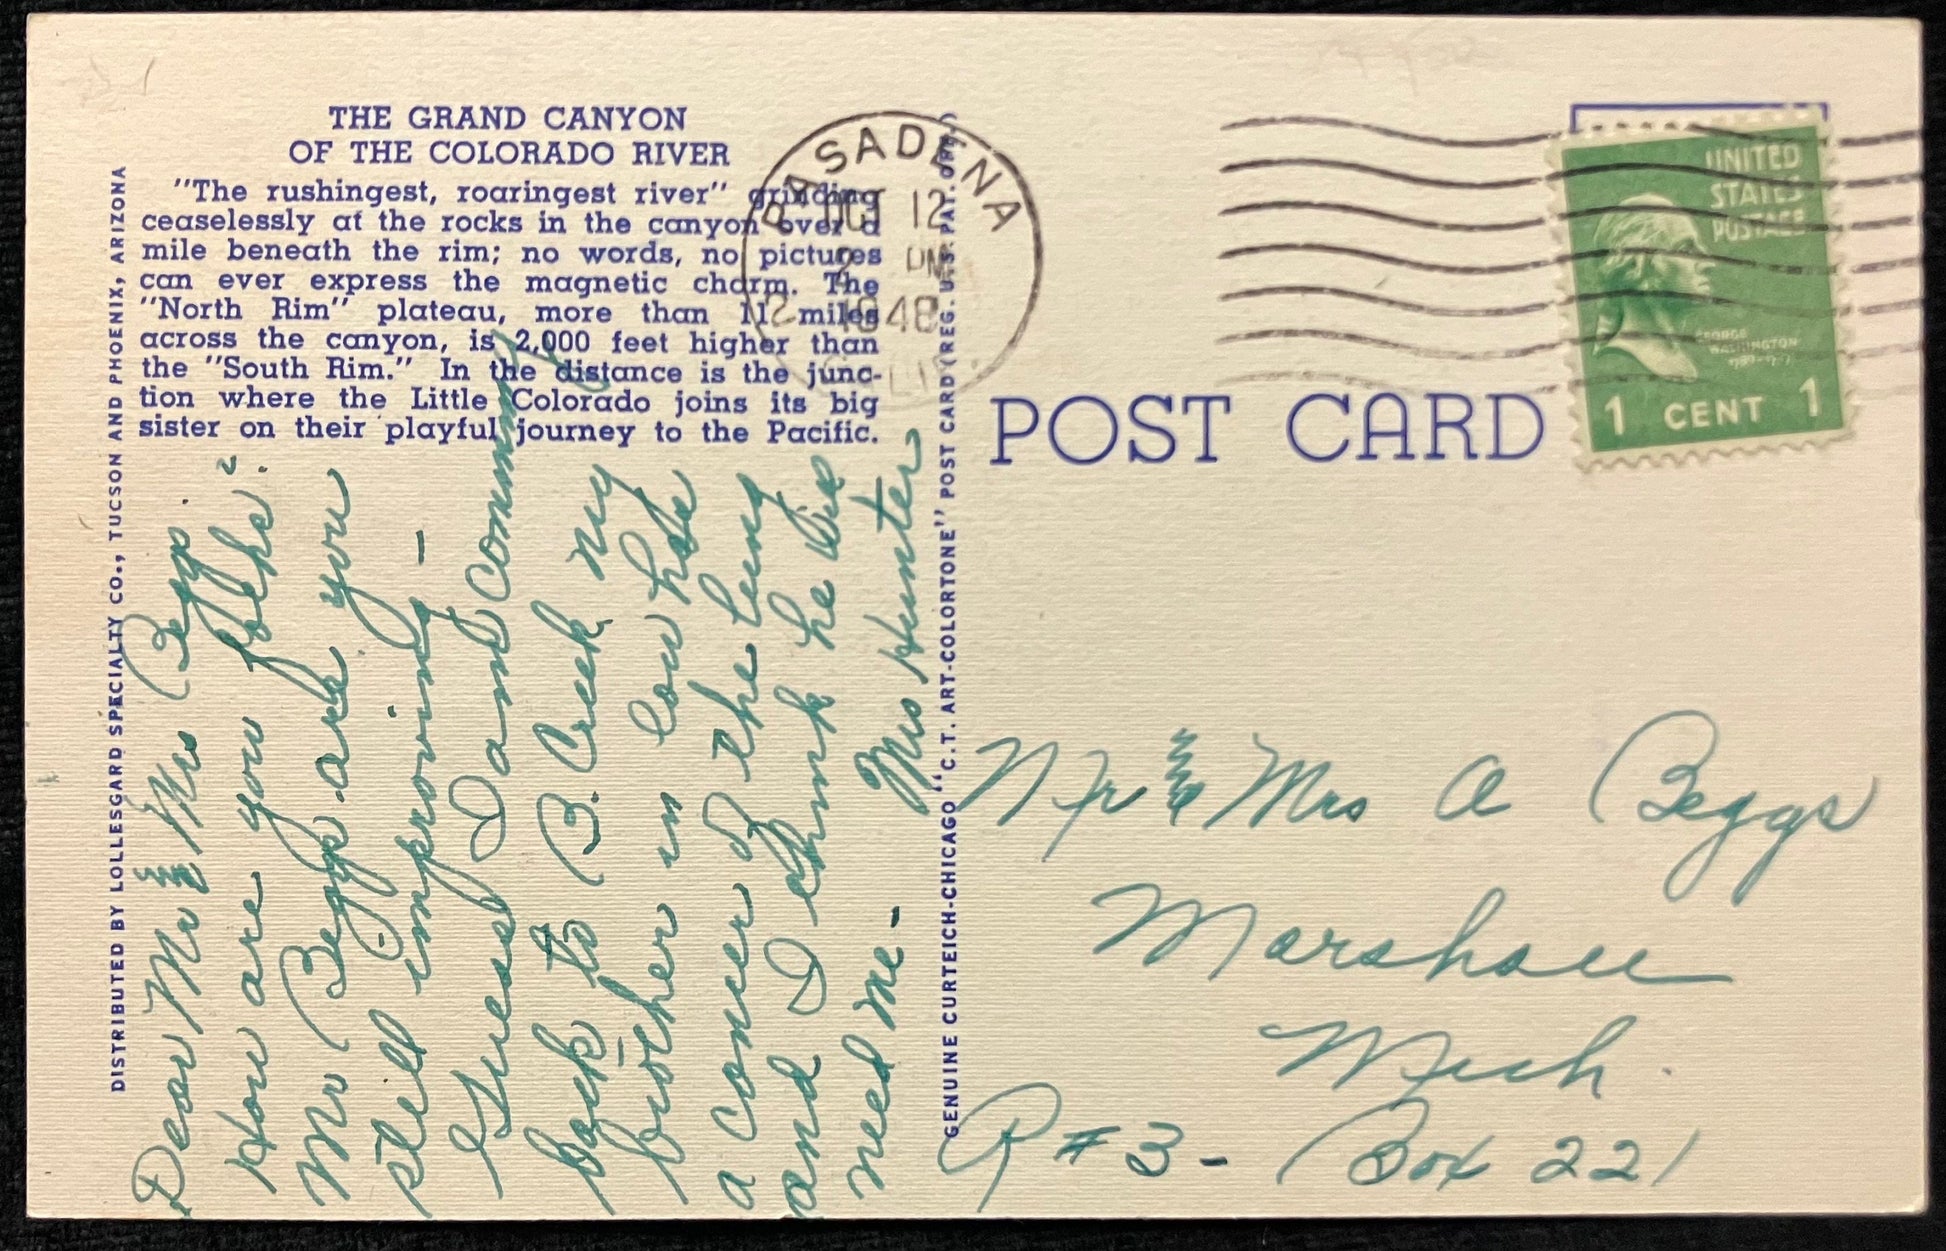 THE GRAND CANYON
OF THE COLORADO RIVER
"The rushingest, roaringest river" grinding
ceaselessly at the rocks in the canyon over a
mile beneath the rim; no words, no pictures
can ever express the magnetic charm. The
"North Rim" plateau, more than 11 miles
across the canyon, is 2,000 feet higher than
the "South Rim." In the distance is the junc-
tion where the Little Colorado joins its big
sister on their playful journey to the Pacific.
DISTRIBUTED BY LOLLESGARD SPECIALTY CO., TUCSON AND PHOENIX, ARIZONA
Dear Mr & Mrs Begg.
How are you folks?
Mr Beggs are you
still improving -
Guess I am coming
back to B. Creek my
brother in law has
a cancer of the lung
and I think he
need me -
Mrs Hunter
GENUINE CURTEICH-CHICAGO "C.T. ART-COLORTONE" POST CARD (REG. U.S. PAT. OFF.)
PASADENA
OCT 12
2 PM
1948
CALIF.
POST CARD
UNITED
STATES
POSTAGE
GEORGE
WASHINGTON
1789-1797
1 CENT 1
Mr & Mrs A Beggs
Marshall
Mich.
R #3 - Box 221